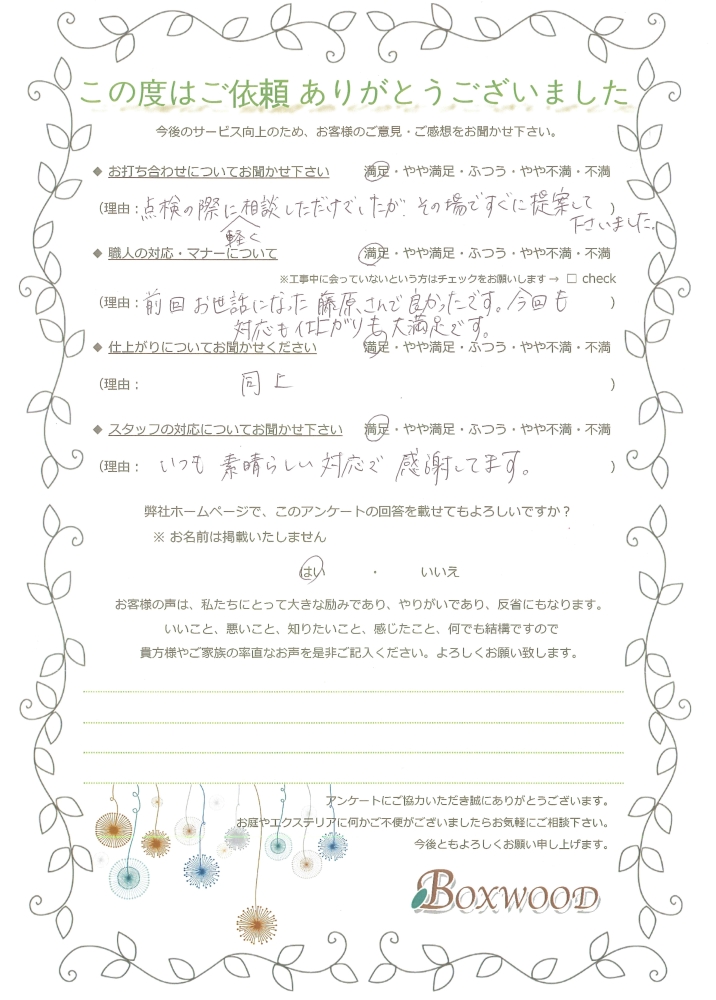 この度はご依頼 ありがとうございました
今後のサービス向上のため、お客様のご意見・ご感想をお聞かせ下さい。
◆ お打ち合わせについてお聞かせ下さい 満足・やや満足・ふつう・やや不満・不満
(理由：点検の際に相談しただけでしたが、その場ですぐに提案して )
軽く 下さいました。
◆ 職人の対応・マナーについて 満足・やや満足・ふつう・やや不満・不満
※工事中に会っていないという方はチェックをお願いします→ □ check
(理由：前回お世話になった藤原さんで良かったです。今回も )
対応も仕上がりも大満足です。
◆ 仕上がりについてお聞かせください 満足・やや満足・ふつう・やや不満・不満
(理由： 同上 )
◆ スタッフの対応についてお聞かせ下さい 満足・やや満足・ふつう・やや不満・不満
(理由： いつも 素晴らしい対応で 感謝してます。 )
弊社ホームページで、このアンケートの回答を載せてもよろしいですか？
※ お名前は掲載いたしません
はい ・ いいえ
お客様の声は、私たちにとって大きな励みであり、やりがいであり、反省にもなります。
いいこと、悪いこと、知りたいこと、感じたこと、何でも結構ですので
貴方様やご家族の率直なお声を是非ご記入ください。よろしくお願い致します。
アンケートにご協力いただき誠にありがとうございます。
お庭やエクステリアに何かご不便がございましたらお気軽にご相談下さい。
今後ともよろしくお願い申し上げます。
BOXWOOD